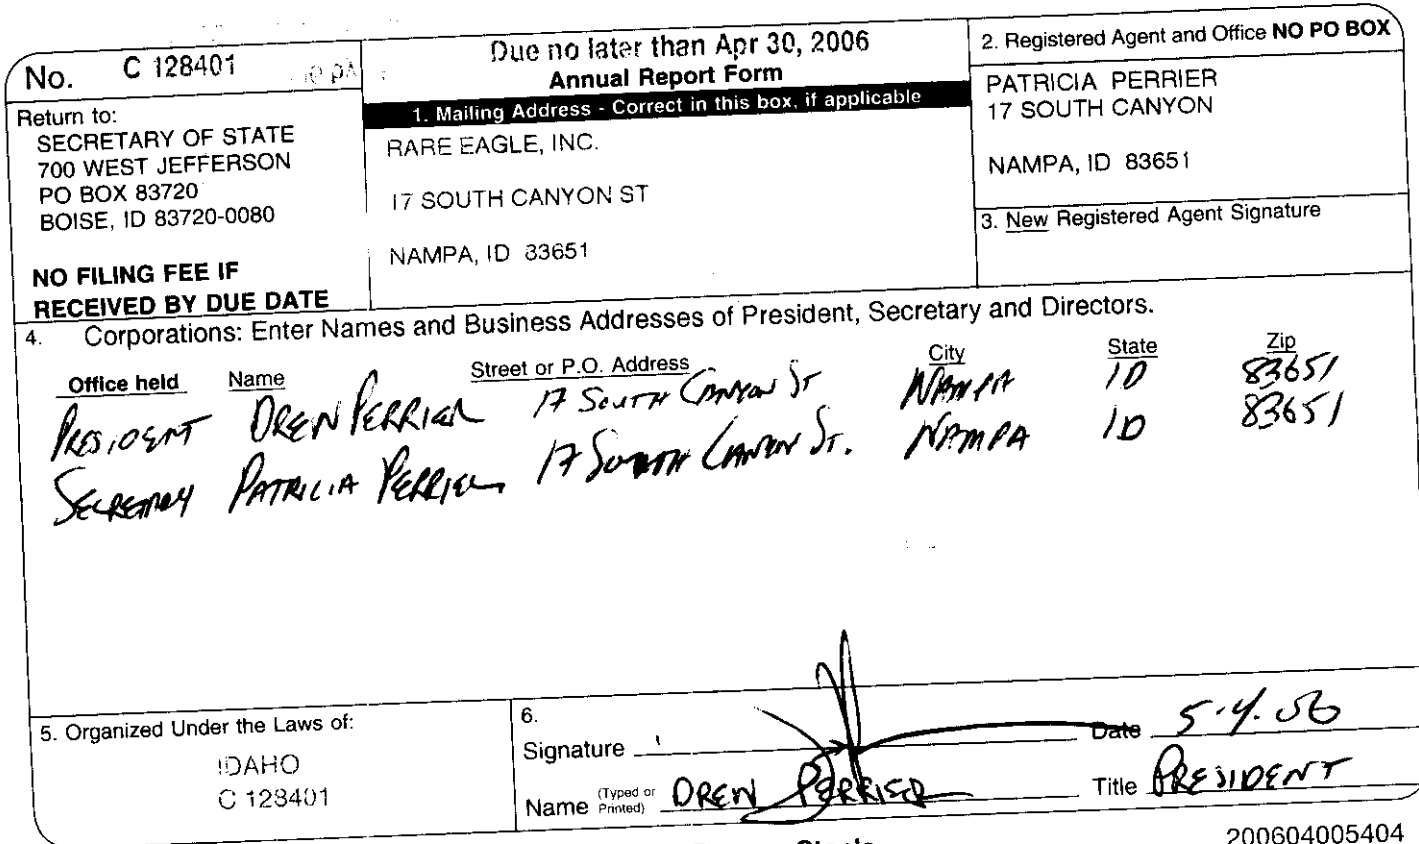 No. C 128401
Return to:
SECRETARY OF STATE
700 WEST JEFFERSON
PO BOX 83720
BOISE, ID 83720-0080
NO FILING FEE IF
RECEIVED BY DUE DATE
Due no later than Apr 30, 2006
Annual Report Form
1. Mailing Address - Correct in this box, if applicable
RARE EAGLE, INC.
17 SOUTH CANYON ST
NAMPA, ID 83651
2. Registered Agent and Office NO PO BOX
PATRICIA PERRIER
17 SOUTH CANYON
NAMPA, ID 83651
3. New Registered Agent Signature
4. Corporations: Enter Names and Business Addresses of President, Secretary and Directors.
Office held Name Street or P.O. Address City State Zip
PRESIDENT DREW PERRIER 17 SOUTH CANYON ST NAMPA ID 83651
SECRETARY PATRICIA PERRIER 17 SOUTH CANYON ST. NAMPA ID 83651
5. Organized Under the Laws of:
IDAHO
C 128401
6.
Signature Date 5.4.06
Name (Typed or Printed) DREW PERRIER Title PRESIDENT
200604005404